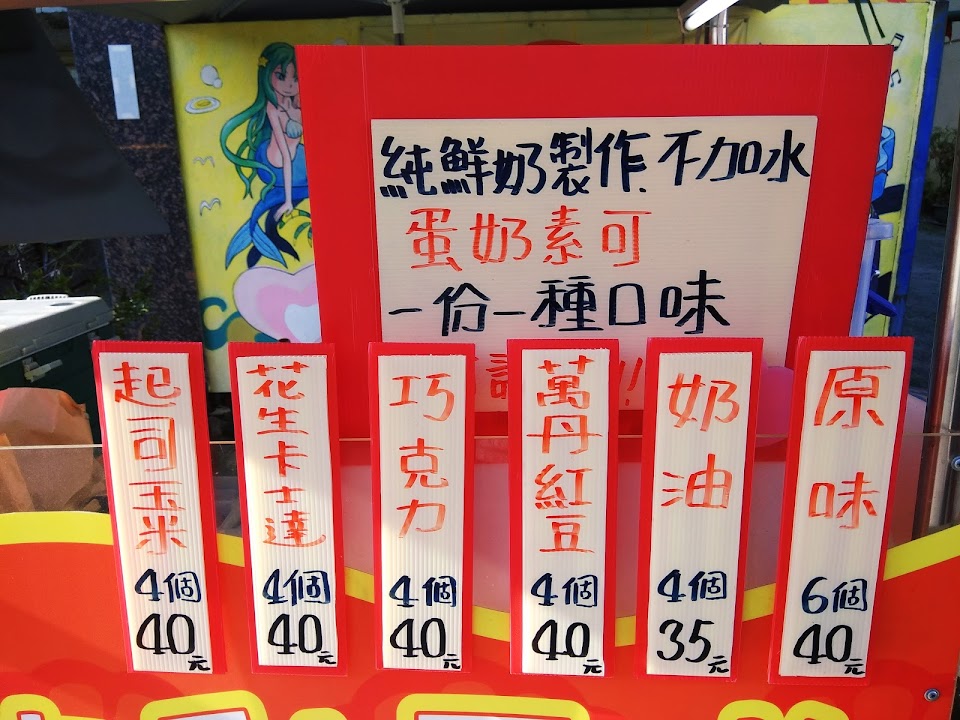 純鮮奶製作.不加水
蛋奶素可
一份一種口味
原味
6個
40元
奶油
4個
35元
萬丹紅豆
4個
40元
巧克力
4個
40元
花生卡士達
4個
40元
起司玉米
4個
40元